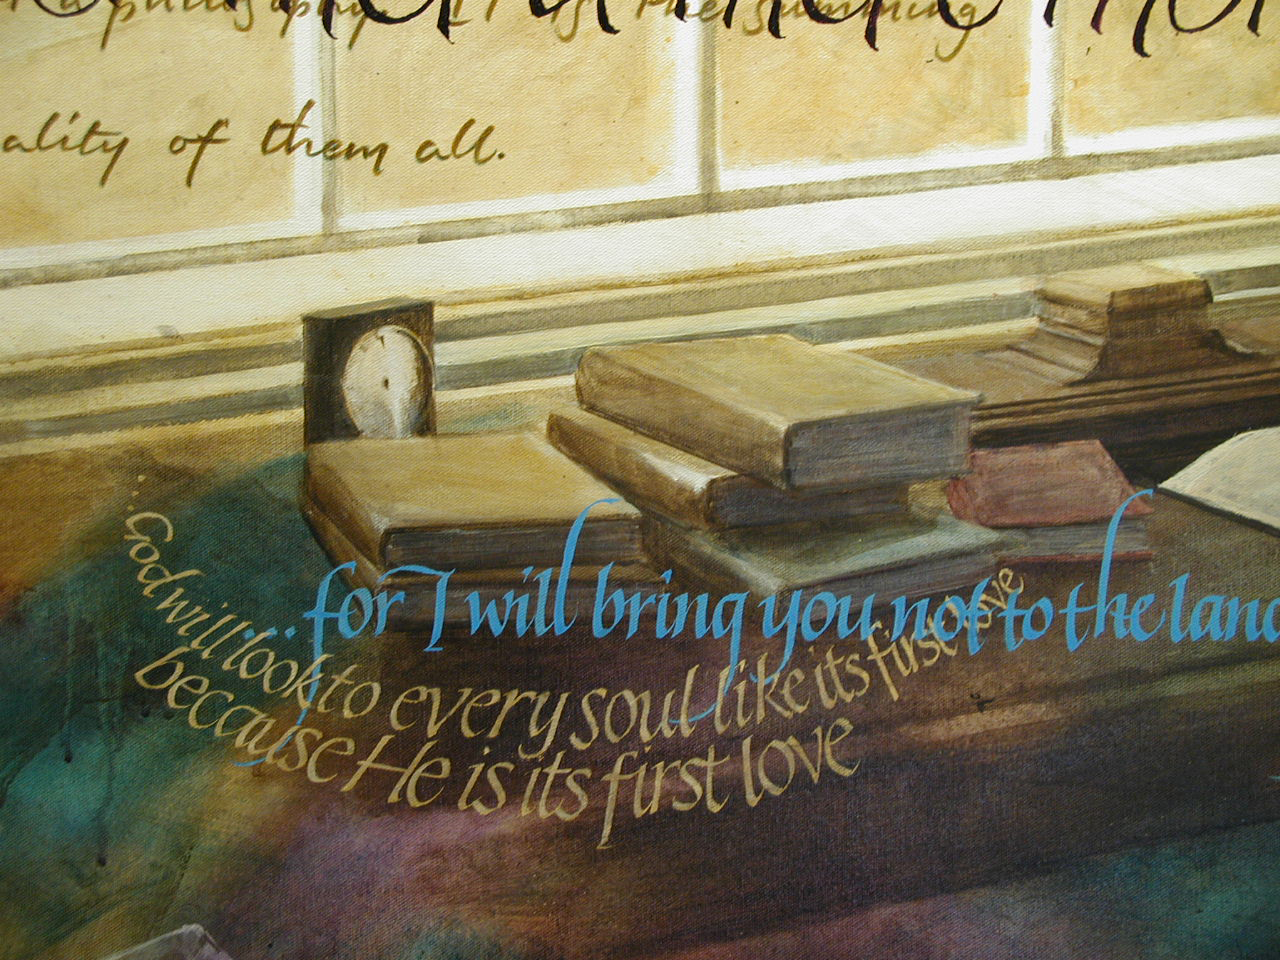 philosophy. It is the summing
ality of them all.
...for I will bring you not to the land
...God will look to every soul like its first love
because He is its first love